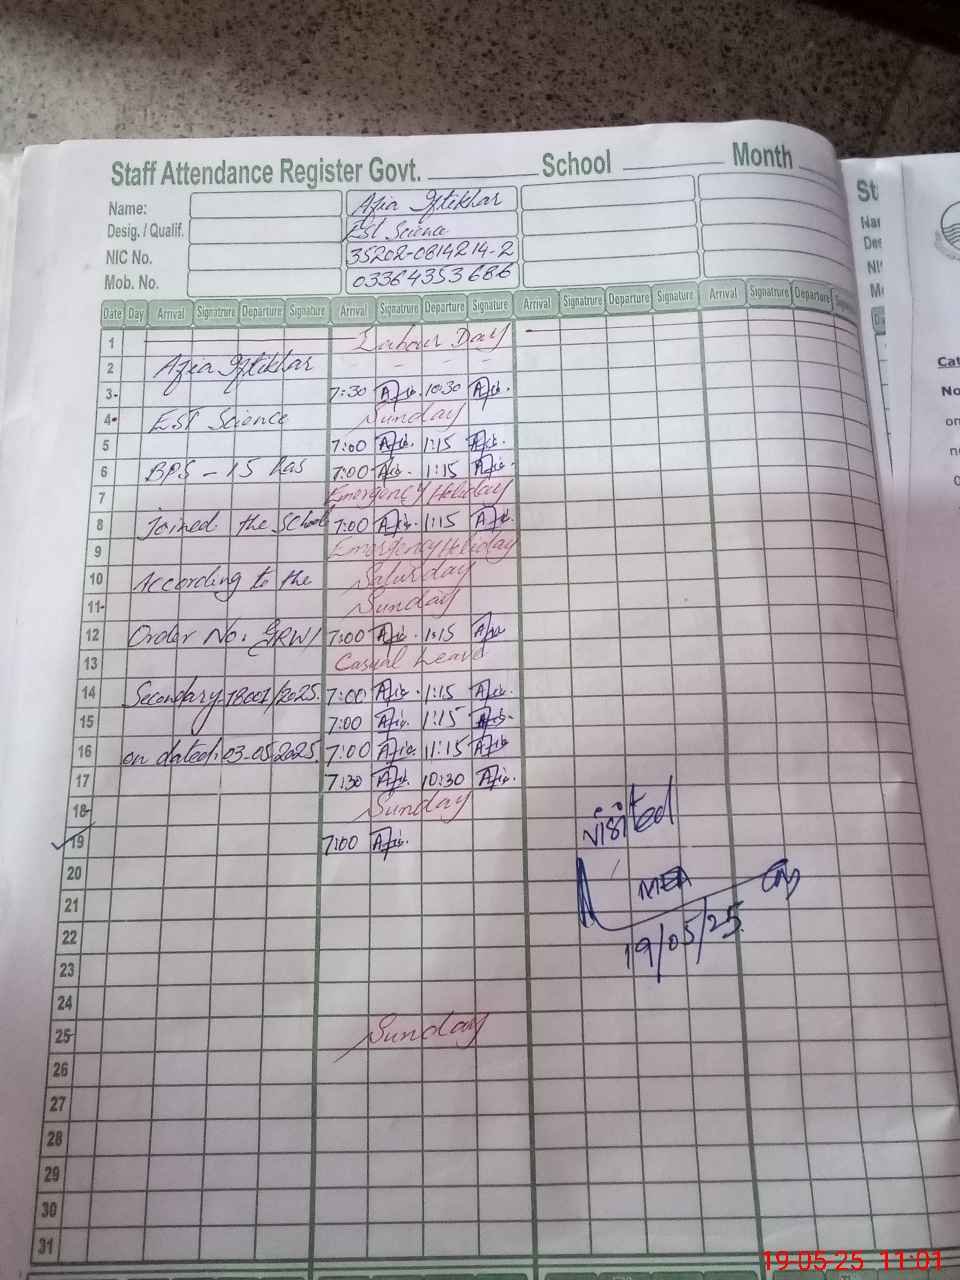 Staff Attendance Register Govt. School Month
St
Name: Azia Iftikhar
Desig. / Qualif. EST Science
NIC No. 35202-0814214-2
Mob. No. 03364353686
Date Day Arrival Signatrure Departure Signature Arrival Signatrure Departure Signature Arrival Signatrure Departure Signature Arrival Signatrure Departure
1 Labour Day
2 Azia Iftikhar - - -
3 7:30 10:30
4 EST Science Sunday
5 7:00 1:15
6 BPS - 15 has 7:00 1:15
7 Emergency Holiday
8 joined the School 7:00 1:15
9 Emergency Holiday
10 According to the Saturday
11 Sunday
12 Order No. GRW/ 7:00 1:15
13 Casual Leave
14 Secondary 18001/2025. 7:00 1:15
15 7:00 1:15
16 on dated: 03-05-2025. 7:00 11:15
17 7:30 10:30
18 Sunday
19 7:00
visited
20
MEA
21
19/05/25
22
23
24
25 Sunday
26
27
28
29
30
31
Cat
No
on
19-05-25 11:01